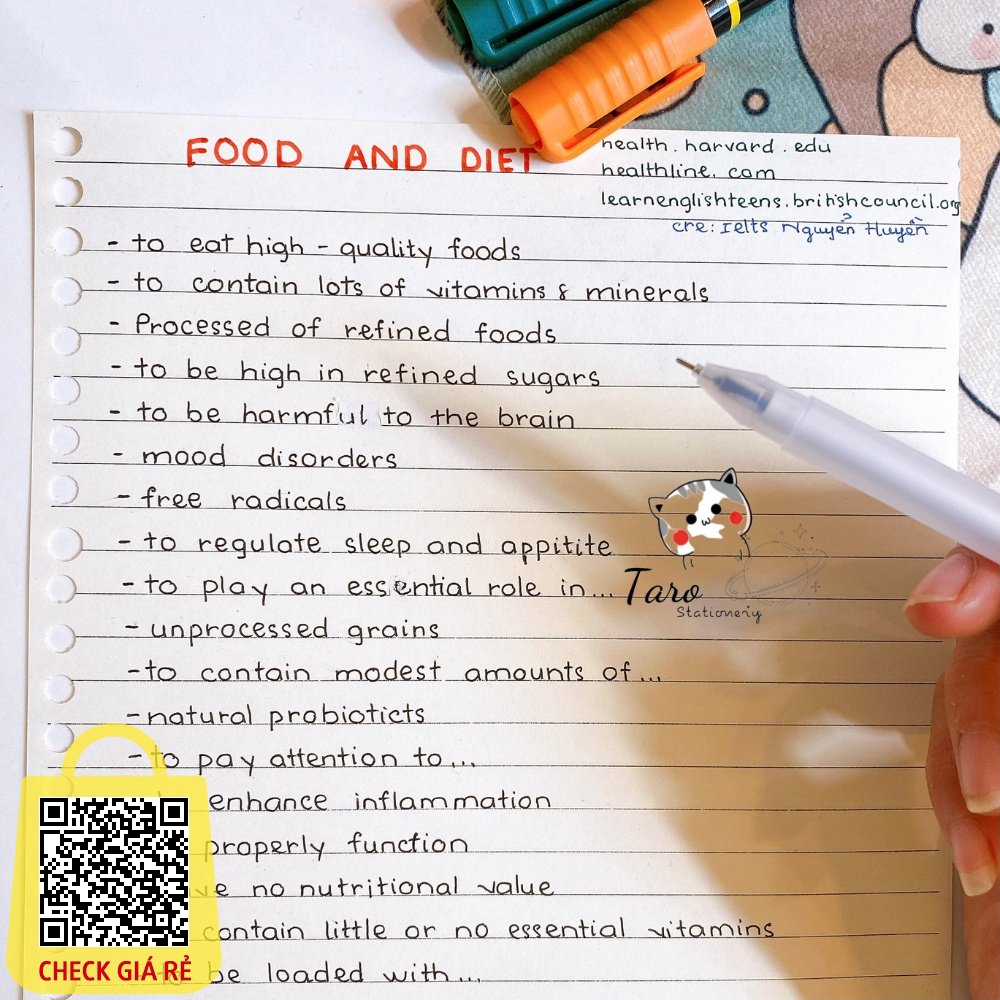 FOOD AND DIET
health.harvard.edu
healthline.com
learnenglishteens.britishcouncil.org
cre: Ielts Nguyễn Huyền
- to eat high - quality foods
- to contain lots of vitamins & minerals
- Processed of refined foods
- to be high in refined sugars
- to be harmful to the brain
- mood disorders
- free radicals
- to regulate sleep and appitite
- to play an essential role in...
- unprocessed grains
- to contain modest amounts of...
- natural probioticts
- to pay attention to...
enhance inflammation
properly function
ve no nutritional value
contain little or no essential vitamins
to be loaded with...
Taro
Stationery
CHECK GIÁ RẺ